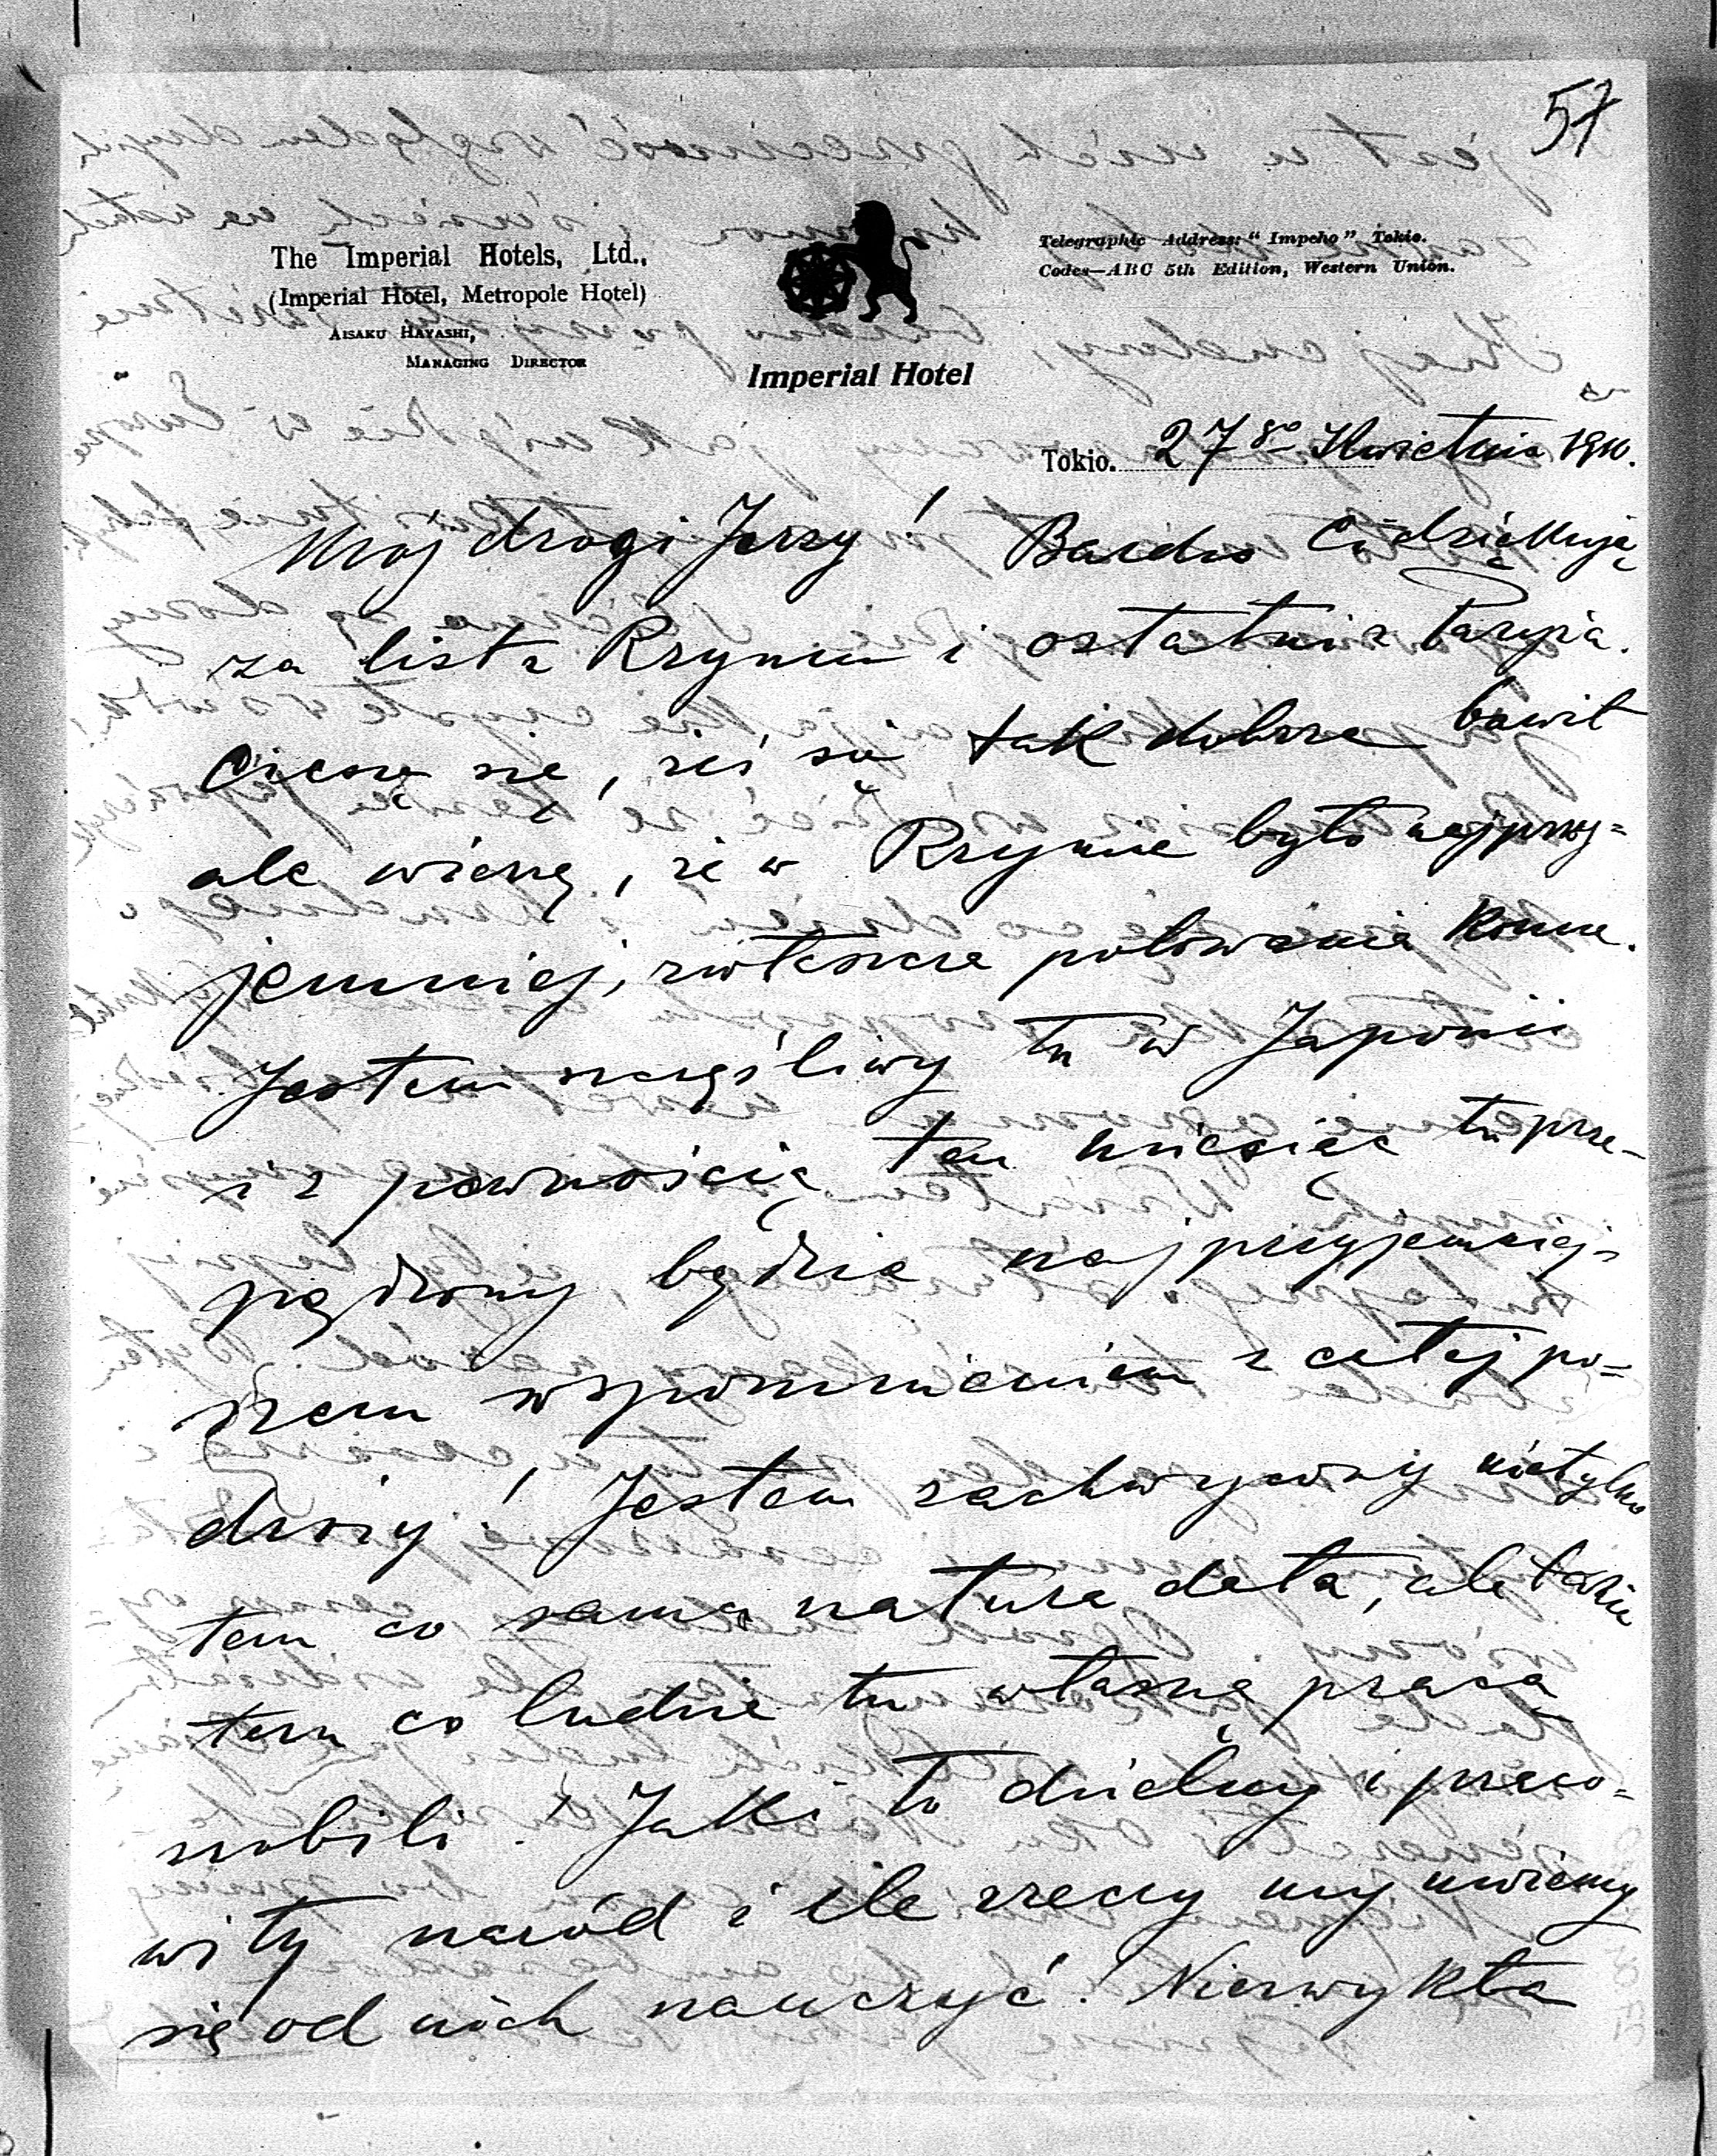 57
The Imperial Hotels, Ltd.,
(Imperial Hotel, Metropole Hotel)
AISAKU HAYASHI,
MANAGING DIRECTOR
Imperial Hotel
Telegraphic Address: "Impeho" Tokio.
Codes—ABC 5th Edition, Western Union.
Tokio. 27go Kwietnia 1910.
Mój drogi Jerzy! Bardzo Ci dziękuję
za list z Rzymu i ostatni z Paryża.
Cieszę się, żeś się tak dobrze bawił
ale wierzę, że w Rzymie było najprzy=
jemniej, zwłaszcza polowania konne.
Jestem szczęśliwy tu w Japonii
i z pewnością ten miesiąc tu prze-
pędzony będzie najprzyjemniej-
szem wspomnieniem z całej po=
droży! Jestem zachwycony nietylko
tem co sama natura dała, ale także
tem co ludzie tu własną pracą
zrobili! Jaki to dzielny i praco=
wity naród i ile rzeczy my umiemy
się od nich nauczyć! Niezwykła